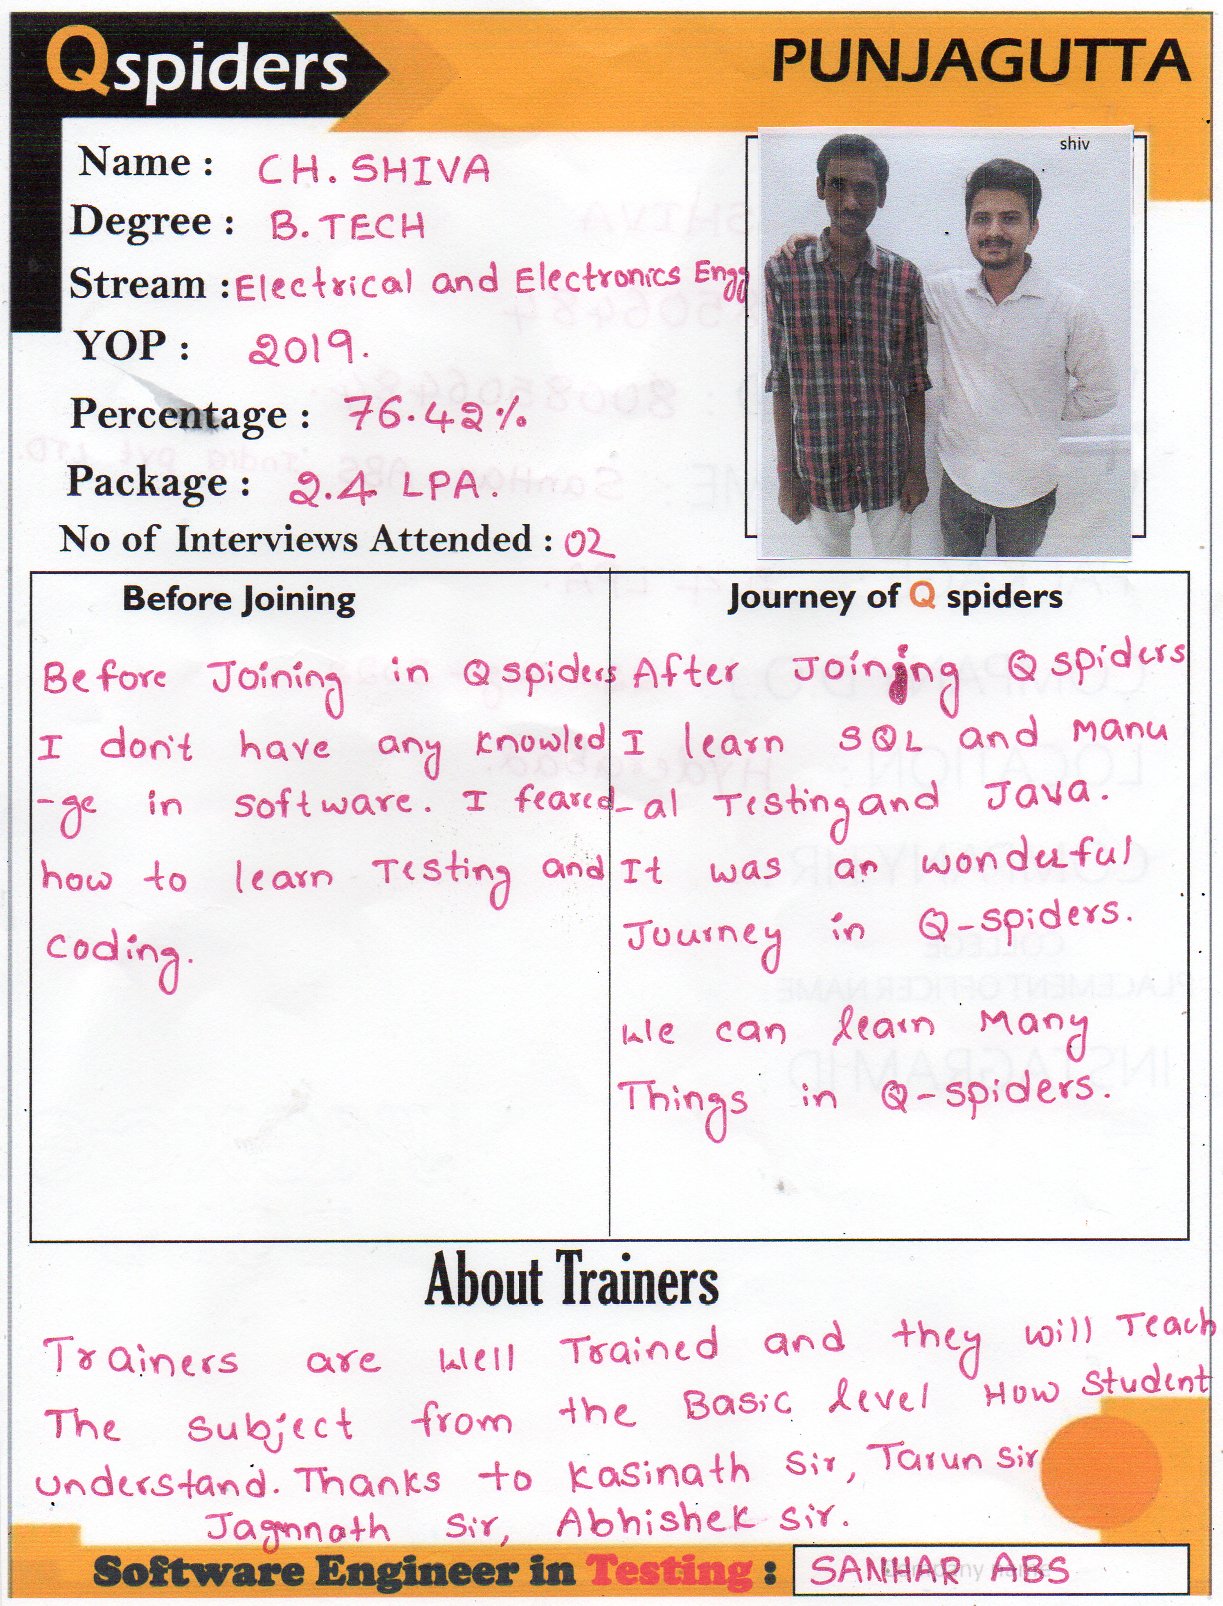 Qspiders
PUNJAGUTTA
shiv
Name : CH. SHIVA
Degree : B. TECH
Stream : Electrical and Electronics Engg
YOP : 2019.
Percentage : 76.42%
Package : 2.4 LPA.
No of Interviews Attended : 02
Before Joining
Before Joining in Qspiders
I don't have any knowled
-ge in software. I feared
how to learn Testing and
coding.
Journey of Q spiders
After Joining Qspiders
I learn SQL and Manu
-al Testing and Java.
It was an wonderful
Journey in Q-spiders.
We can learn Many
Things in Q-spiders.
About Trainers
Trainers are Well Trained and they will Teach
The subject from the Basic level How Student
understand. Thanks to Kasinath Sir, Tarun sir
Jagnnath Sir, Abhishek sir.
Software Engineer in Testing : SANHAR ABS